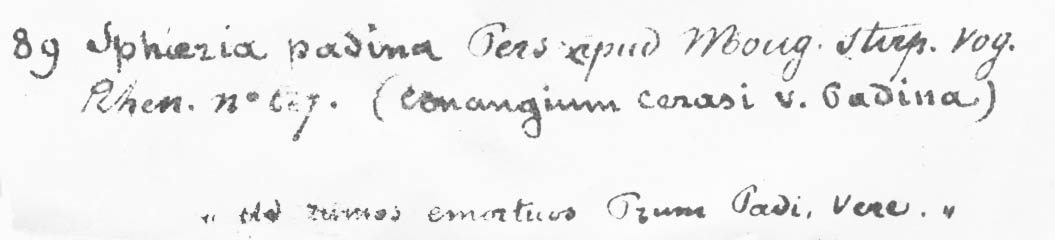 89 Sphæria padina Pers apud Moug. stirp. Vog.
Rhen. nº (Cenangium cerasi v. Padina)
„ ad ramos emortuos Prum Padi. Vere. „